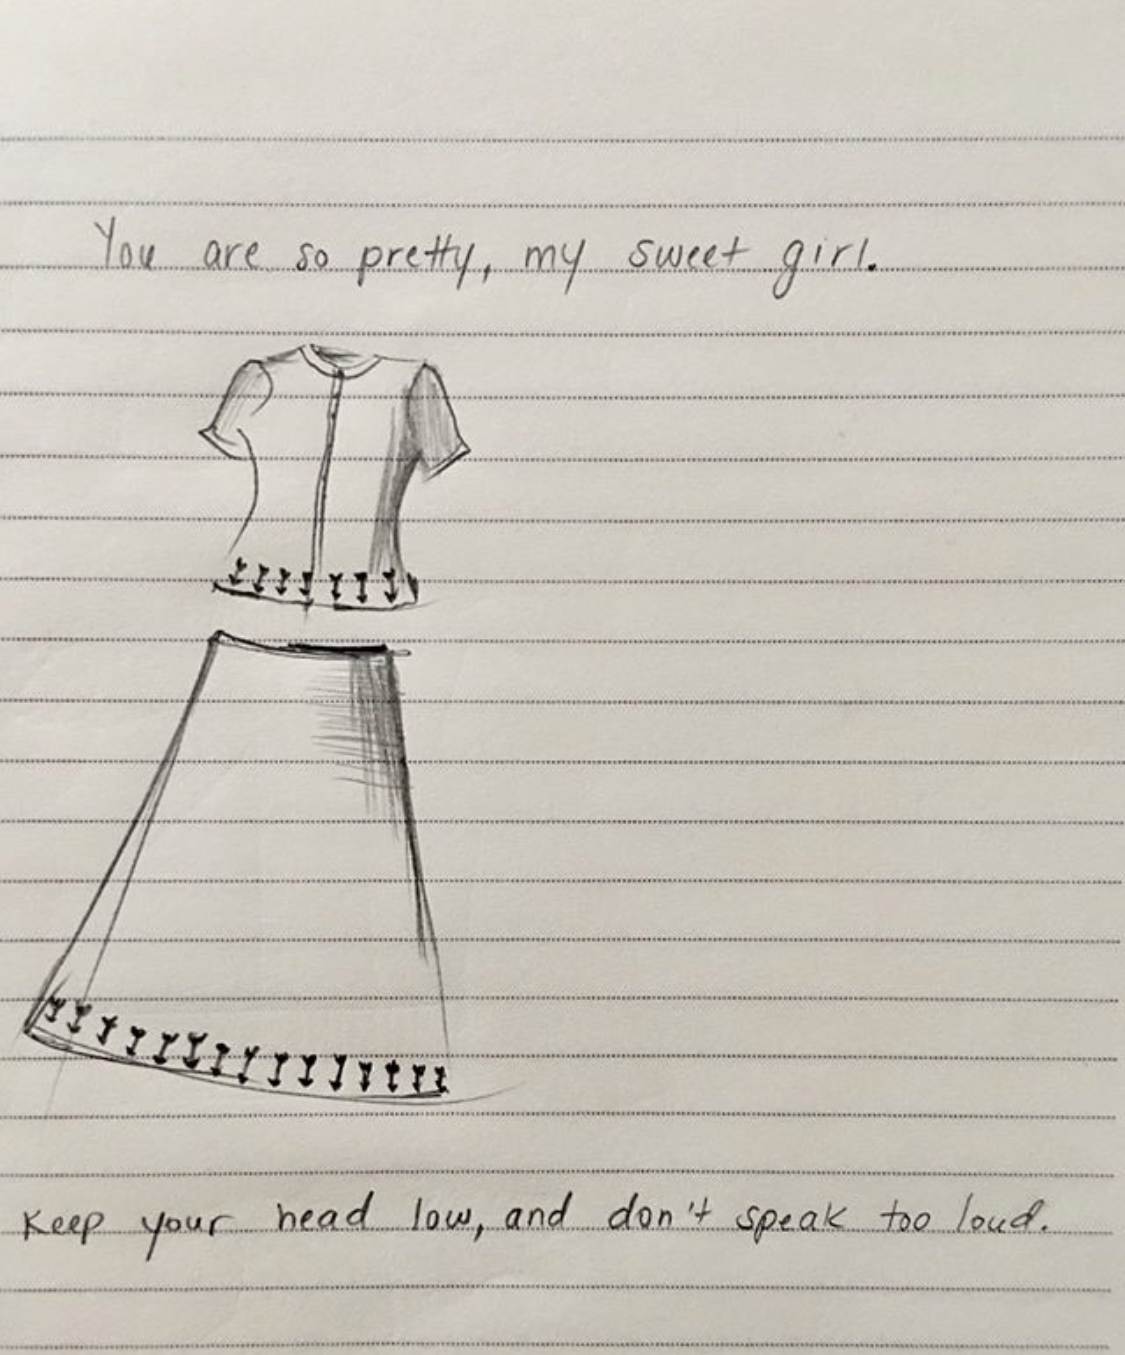 You are so pretty, my sweet girl.
Keep your head low, and don't speak too loud.